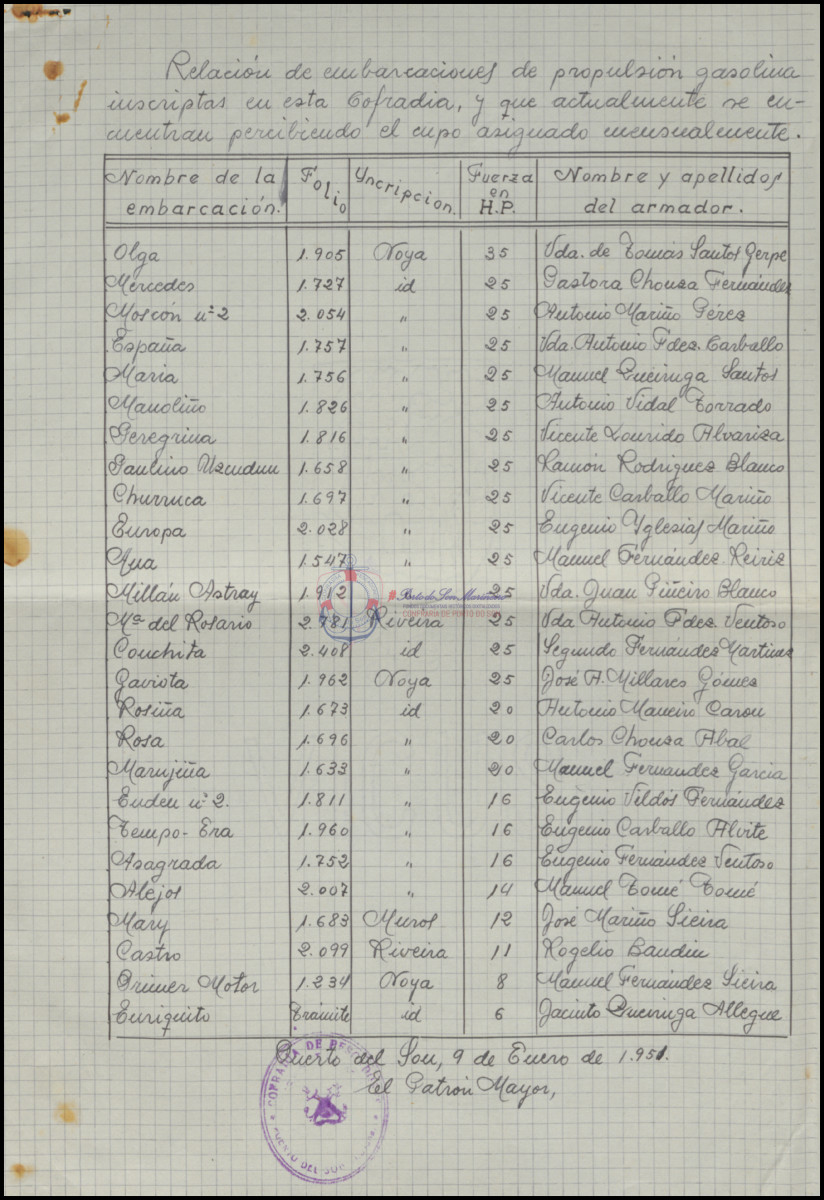 Relación de embarcaciones de propulsión gasolina
inscriptas en esta Cofradia, y que actualmente se en-
cuentran percibiendo el cupo asignado mensualmente.
Nombre de la embarcación. Folio Yncripcion. Fuerza en H.P. Nombre y apellidos del armador.
Olga 1.905 Noya 35 Vda. de Tomás Santos Gerpe
Mercedes 1.727 id 25 Pastora Chouza Fernández
Moscón nº 2 2.054 " 25 Antonio Mariño Pérez
España 1.757 " 25 Vda. Antonio Fdez. Carballo
Maria 1.756 " 25 Manuel Queiruga Santos
Manoliño 1.826 " 25 Antonio Vidal Torrado
Peregrina 1.816 " 25 Vicente Lourido Alvariza
Paulino Uzcudun 1.658 " 25 Ramón Rodriguez Blanco
Churruca 1.697 " 25 Vicente Carballo Mariño
Europa 2.028 " 25 Eugenio Yglesias Mariño
Ana 1.547 " 25 Manuel Fernández Reiriz
Millán Astray 1.912 25 Vda. Juan Piñeiro Blanco
Mª del Rosario 2.781 Riveira 25 Vda Antonio Fdez Ventoso
Conchita 2.408 id 25 Segundo Fernández Martinez
Gaviota 1.962 Noya 25 José A. Millares Gómez
Rosiña 1.673 id 20 Antonio Maneiro Carou
Rosa 1.696 " 20 Carlos Chouza Abal
Marujiña 1.633 " 20 Manuel Fernandez Garcia
Euden nº 2. 1.811 " 16 Eugenio Vildós Fernández
Tempo-Era 1.960 " 16 Eugenio Carballo Alvite
Asagrada 1.752 " 16 Eugenio Fernández Ventoso
Alejos 2.007 " 14 Manuel Tomé Tomé
Mary 1.683 Muros 12 José Mariño Sieira
Castro 2.099 Riveira 11 Rogelio Baudin
Primer Motor 1.234 Noya 8 Manuel Fernández Sieira
Enriquito Trámite id 6 Jacinto Queiruga Allegue
Puerto del Son, 9 de Enero de 1.951.
El Patrón Mayor,
COFRADIA DE
PUERTO DEL SON
Porto do Son
CONFRARÍA DE PORTO DO SON